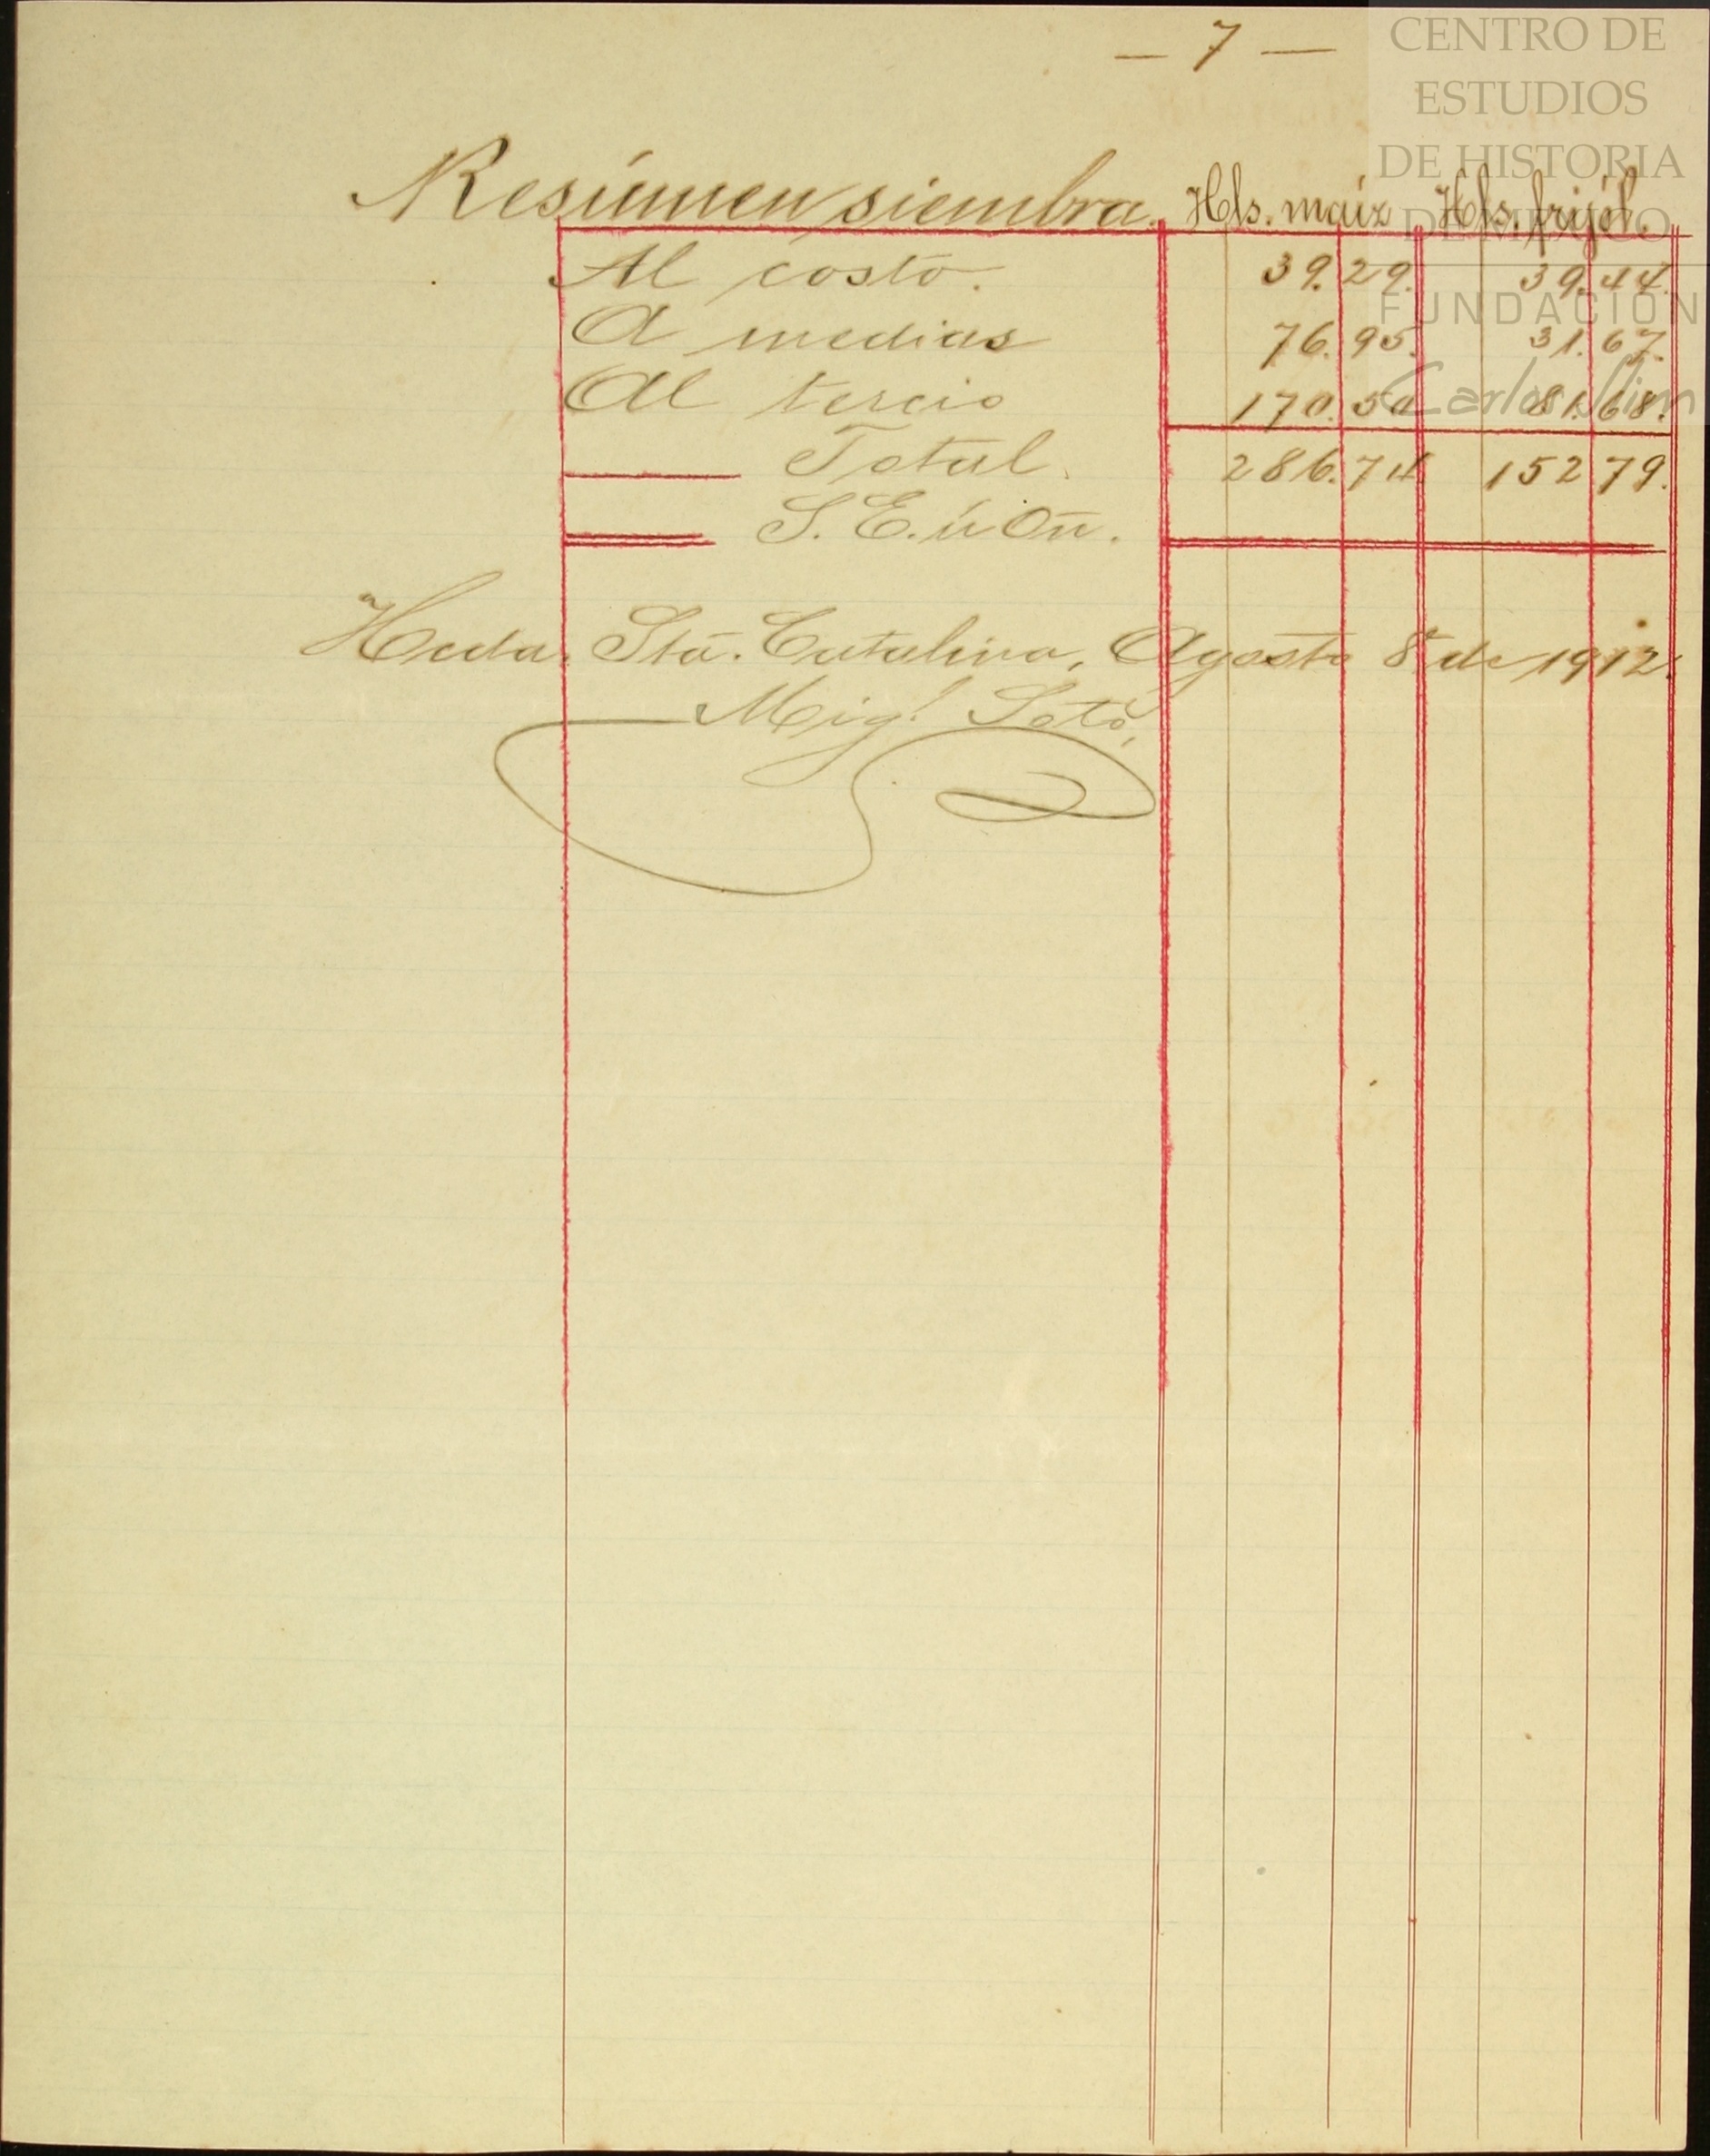 — 7 —
CENTRO DE
ESTUDIOS
DE HISTORIA
DE MÉXICO
FUNDACIÓN
Carlos Slim
Resúmen siembra. Hls. maíz Hls. frijól.
Al costo. 39.29. 39.44.
A medias 76.95. 31.67.
Al tercio 170.50 81.68.
Total. 286.74 152 79.
S. E. ú On.
Hcda. Sta. Catalina, Agosto 8 de 1912.
Migl. Soto,